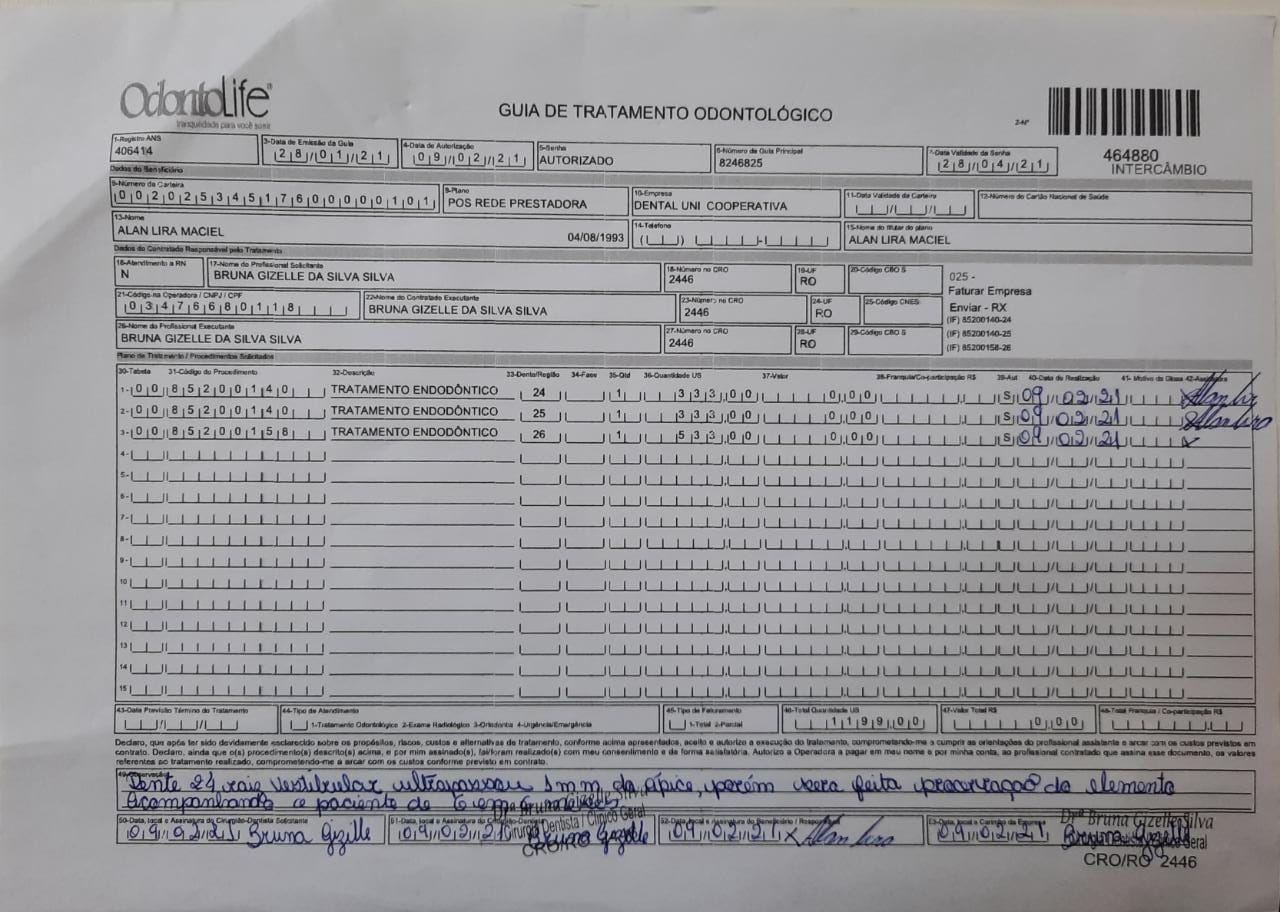 OdontoLife
tranquilidade para você sorrir
GUIA DE TRATAMENTO ODONTOLÓGICO
2-Nº
464880
INTERCÂMBIO
1-Registro ANS
406414
3-Data de Emissão da Guia
28/01/21
4-Data de Autorização
09/02/21
5-Senha
AUTORIZADO
6-Número da Guia Principal
8246825
7-Data Validade da Senha
28/04/21
Dados do Beneficiário
8-Número da Carteira
00202534517600000101
9-Plano
POS REDE PRESTADORA
10-Empresa
DENTAL UNI COOPERATIVA
11-Data Validade da Carteira
12-Número do Cartão Nacional de Saúde
13-Nome
ALAN LIRA MACIEL 04/08/1993
14-Telefone
15-Nome do titular do plano
ALAN LIRA MACIEL
Dados do Contratado Responsável pelo Tratamento
16-Atendimento a RN
N
17-Nome do Profissional Solicitante
BRUNA GIZELLE DA SILVA SILVA
18-Número no CRO
2446
19-UF
RO
20-Código CBO S
025 -
Faturar Empresa
Enviar - RX
(IF) 85200140-24
(IF) 85200140-25
(IF) 85200158-26
21-Código na Operadora / CNPJ / CPF
03476680118
22-Nome do Contratado Executante
BRUNA GIZELLE DA SILVA SILVA
23-Número no CRO
2446
24-UF
RO
25-Código CNES
26-Nome do Profissional Executante
BRUNA GIZELLE DA SILVA SILVA
27-Número no CRO
2446
28-UF
RO
29-Código CBO S
Plano de Tratamento / Procedimentos Solicitados
30-Tabela 31-Código do Procedimento 32-Descrição 33-Dente/Região 34-Face 35-Qtd 36-Quantidade US 37-Valor 38-Franquia/Co-participação R$ 39-Aut 40-Data de Realização 41- Motivo da Glosa 42-Assinatura
1- 00 85200140 TRATAMENTO ENDODÔNTICO 24 1 333,00 0,00 S 09/02/21 Alan Lira
2- 00 85200140 TRATAMENTO ENDODÔNTICO 25 1 333,00 0,00 S 09/02/21 Alan Lira
3- 00 85200158 TRATAMENTO ENDODÔNTICO 26 1 533,00 0,00 S 09/02/21 x
4-
5-
6-
7-
8-
9-
10
11
12
13
14
15
43-Data Previsão Término do Tratamento
44-Tipo de Atendimento
1-Tratamento Odontológico 2-Exame Radiológico 3-Ortodontia 4-Urgência/Emergência
45-Tipo de Faturamento
1-Total 2-Parcial
46-Total Quantidade US
1199,00
47-Valor Total R$
0,00
48-Total Franquia / Co-participação R$
Declaro, que após ter sido devidamente esclarecido sobre os propósitos, riscos, custos e alternativas de tratamento, conforme acima apresentados, aceito e autorizo a execução do tratamento, comprometendo-me a cumprir as orientações do profissional assistente e arcar com os custos previstos em
contrato. Declaro, ainda que o(s) procedimento(s) descrito(s) acima, e por mim assinado(s), fai/foram realizado(s) com meu consentimento e de forma satisfatória. Autorizo a Operadora a pagar em meu nome e por minha conta, ao profissional contratado que assina esse documento, os valores
referentes ao tratamento realizado, comprometendo-me a arcar com os custos conforme previsto em contrato.
49-Observação
Dente 24, raiz vestibular ultrapassou 1mm do ápice, porém sera feita proservação do elemento
Acompanhando o paciente de 6 em 6 meses.
50-Data, local e Assinatura do Cirurgião-Dentista Solicitante
09/02/21 Bruna Gizelle
51-Data, local e Assinatura do Cirurgião-Dentista
09/02/21 Bruna Gizelle
Drª Bruna Gizelle Silva
Cirurgiã Dentista / Clínico Geral
CRO/RO
52-Data, local e Assinatura do Beneficiário / Responsável
09/02/21 x Alan Lira
53-Data, local e Carimbo da Empresa
09/02/21 Bruna Gizelle
Drª Bruna Gizelle Silva
Cirurgiã Dentista / Clínico Geral
CRO/RO 2446